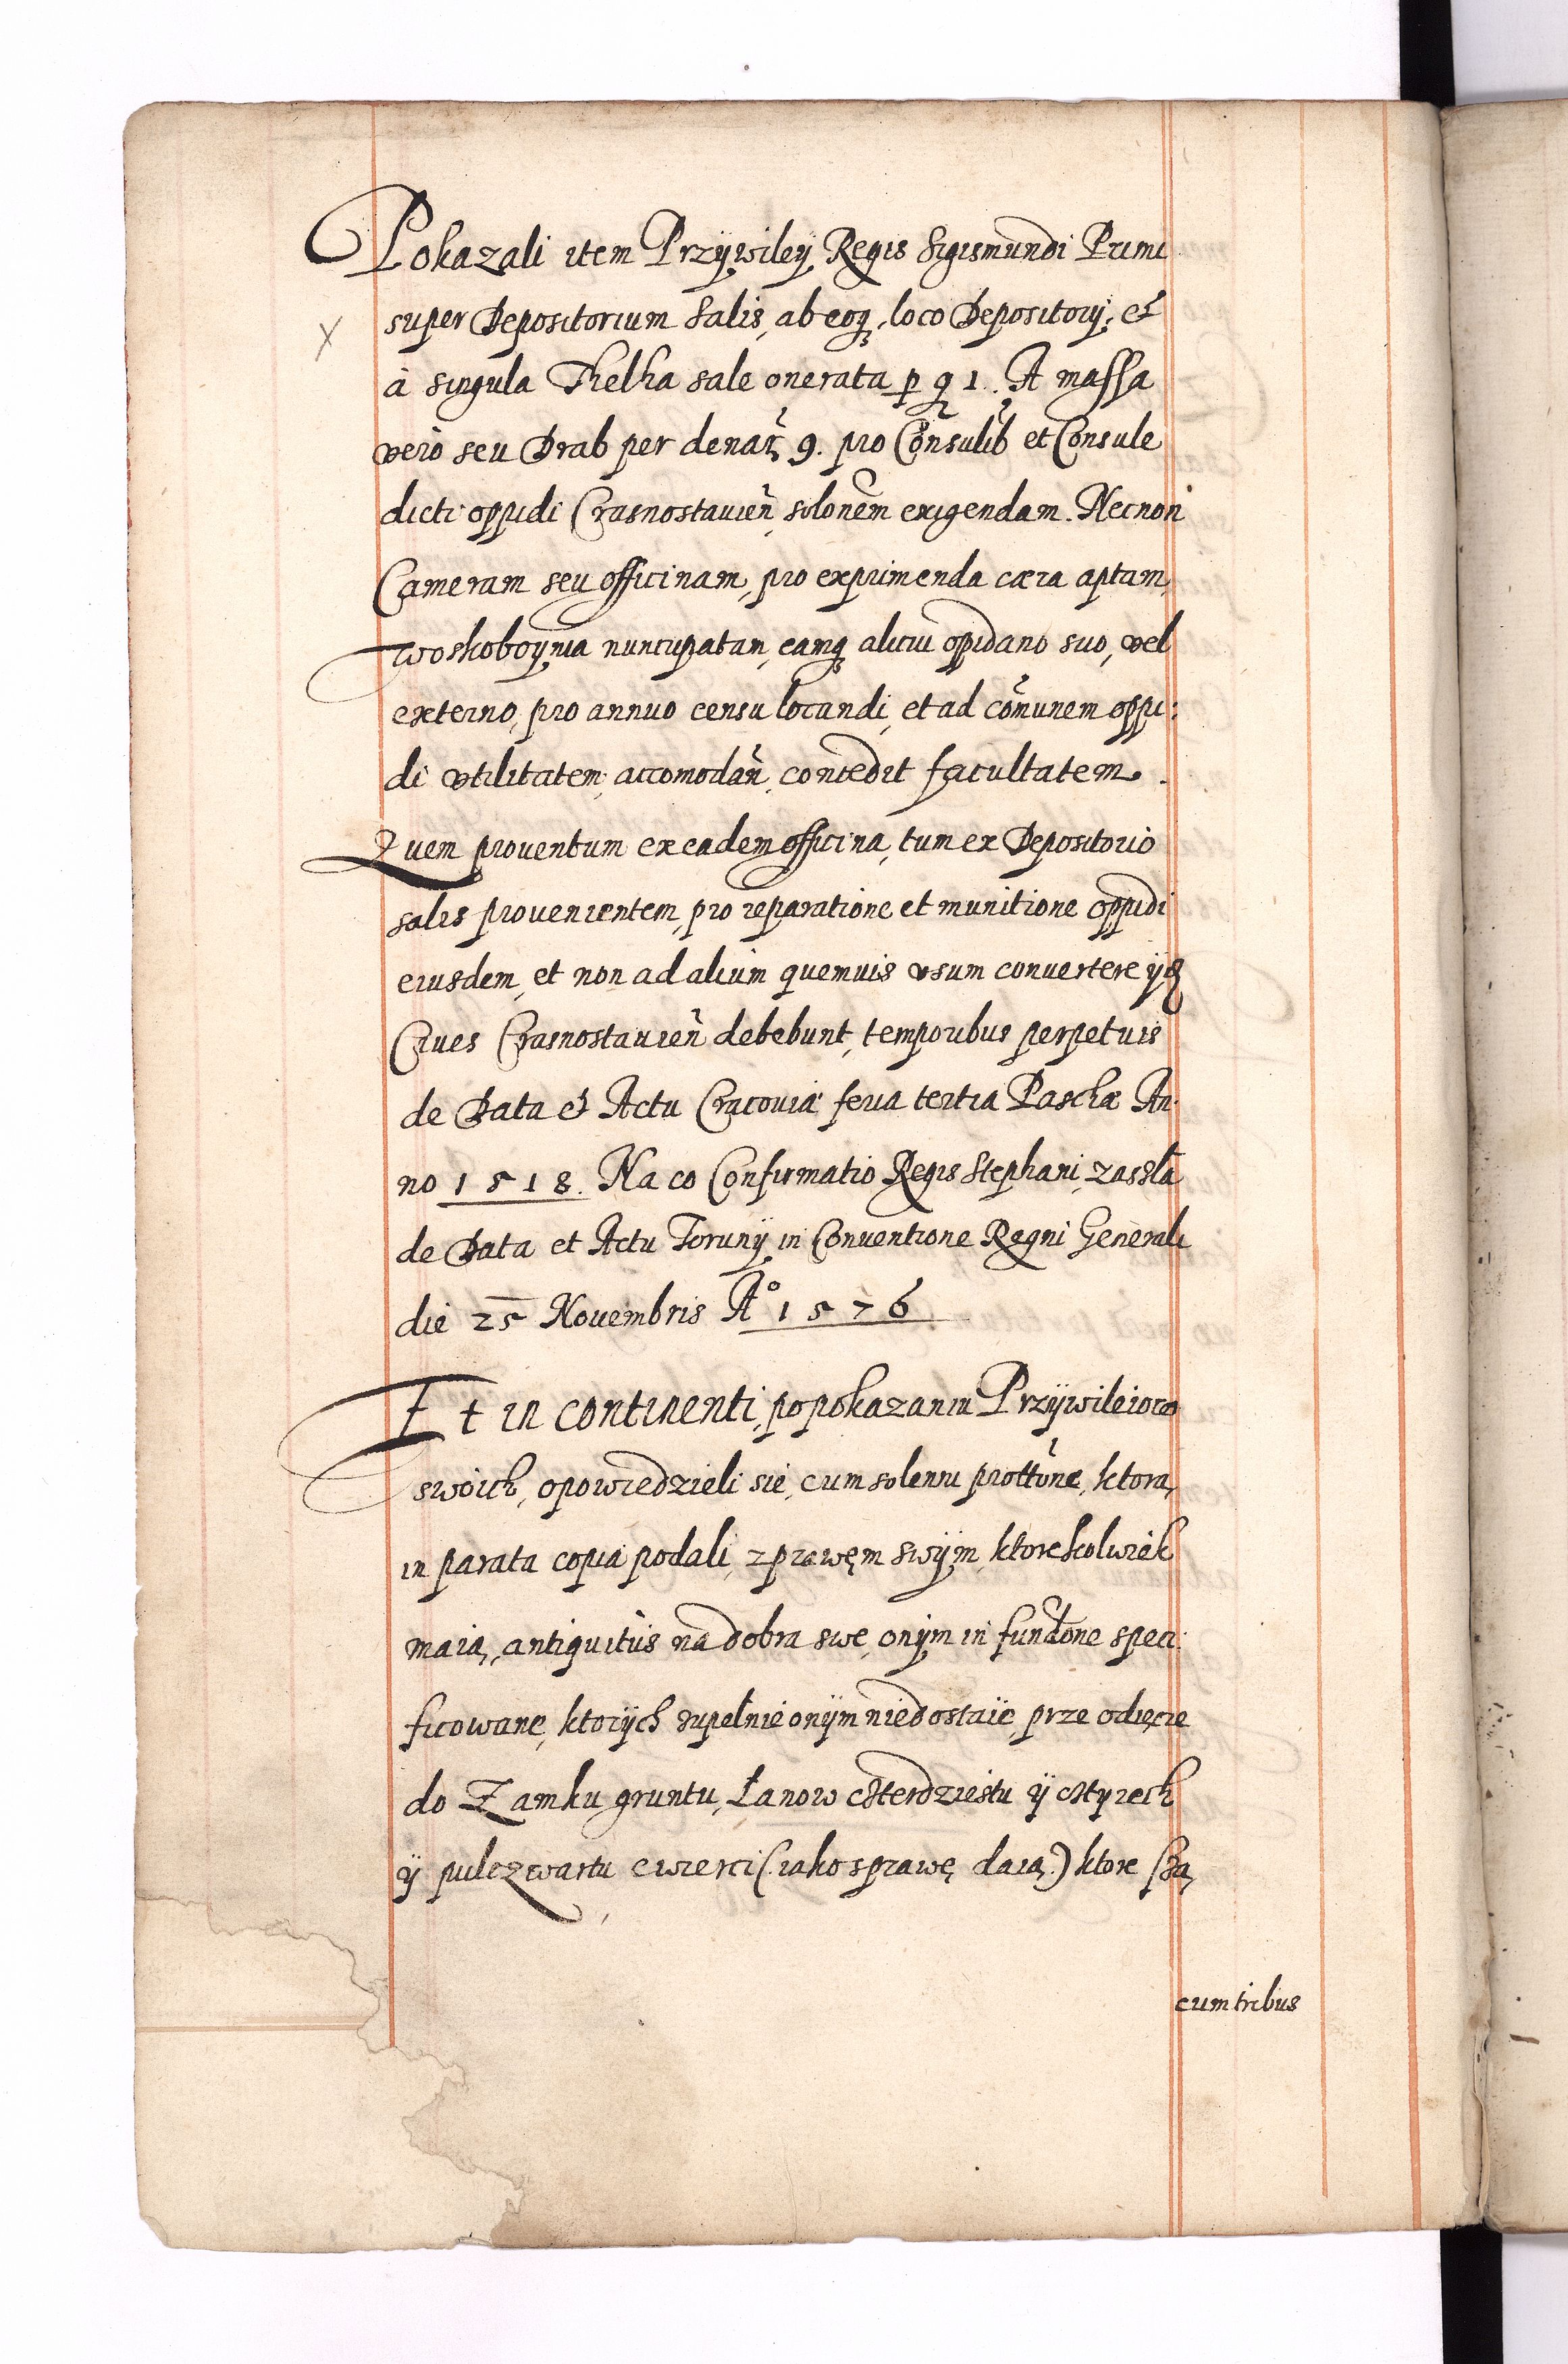 Pokazali item Przÿwileÿ Regis Sigismundi Primi
super Depositorium Salis, ab eoq, loco Depositorÿ, et
à singula Thelka sale onerata p gͬ 1. A massa
vero seu Drab per denar̃ 9. pro Consulib̃ et Consule
dicti oppidi Crasnostavien̄, solonem exigendam. Necnon
Cameram seu officinam, pro exprimenda cæra aptam,
woskoboynia nuncupatan, eamq alicui opidano suo, vel
externo, pro annuo censu locandi, et ad cōmunem oppi:
di vtilitatem, accomodān, concedit facultatem.
Quem proventum ex eadem officina, tum ex Depositorio
salis provenientem, pro reparatione et munitione oppidi
eiusdem, et non ad alium quemvis vsum convertere ijd
Cives Crasnostavien̄ debebunt, temporibus perpetuis
de Data et Actu Cracoviæ feria tertia Paschæ An
no 1518. Na co Confirmatio Regis Stephani, zaszła
de Data et Actu Torunÿ in Conventione Regni Generali
die 25 Novembris A° 1576
Et in continenti, po pokazaniu Przÿwileiow
swoich, opowiedzieli sie, cum solenni prottōne, ktorą
in parata copia podali, z prawęm swÿm, ktorekolwiek
maią, antiquitùs na dobra swe, onÿm in fundōne speci:
ficowane, ktorÿch zupełnie onÿm niedostaïe, prze odięcie
do Zamku gruntu, Łanow czterdziestu ÿ cztyrech
ÿ pulczwartu cwierci (iako sprawę daią) ktore są
cum tribus